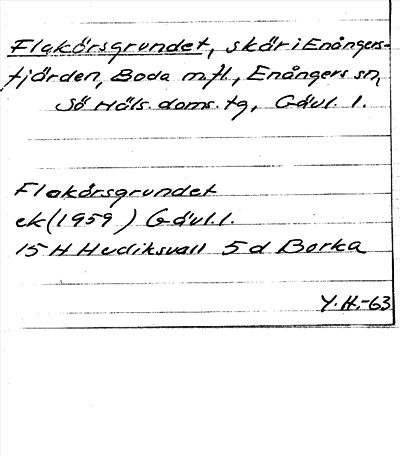 Flakörsgrundet, skär i Enångers-
fjärden, Boda m fl., Enångers sn,
Sö Häls. doms. tg, Gävl. l.
Flakörsgrundet
ek (1959) Gävl. l.
15 H Hudiksvall 5 d Borka
Y. H.-63